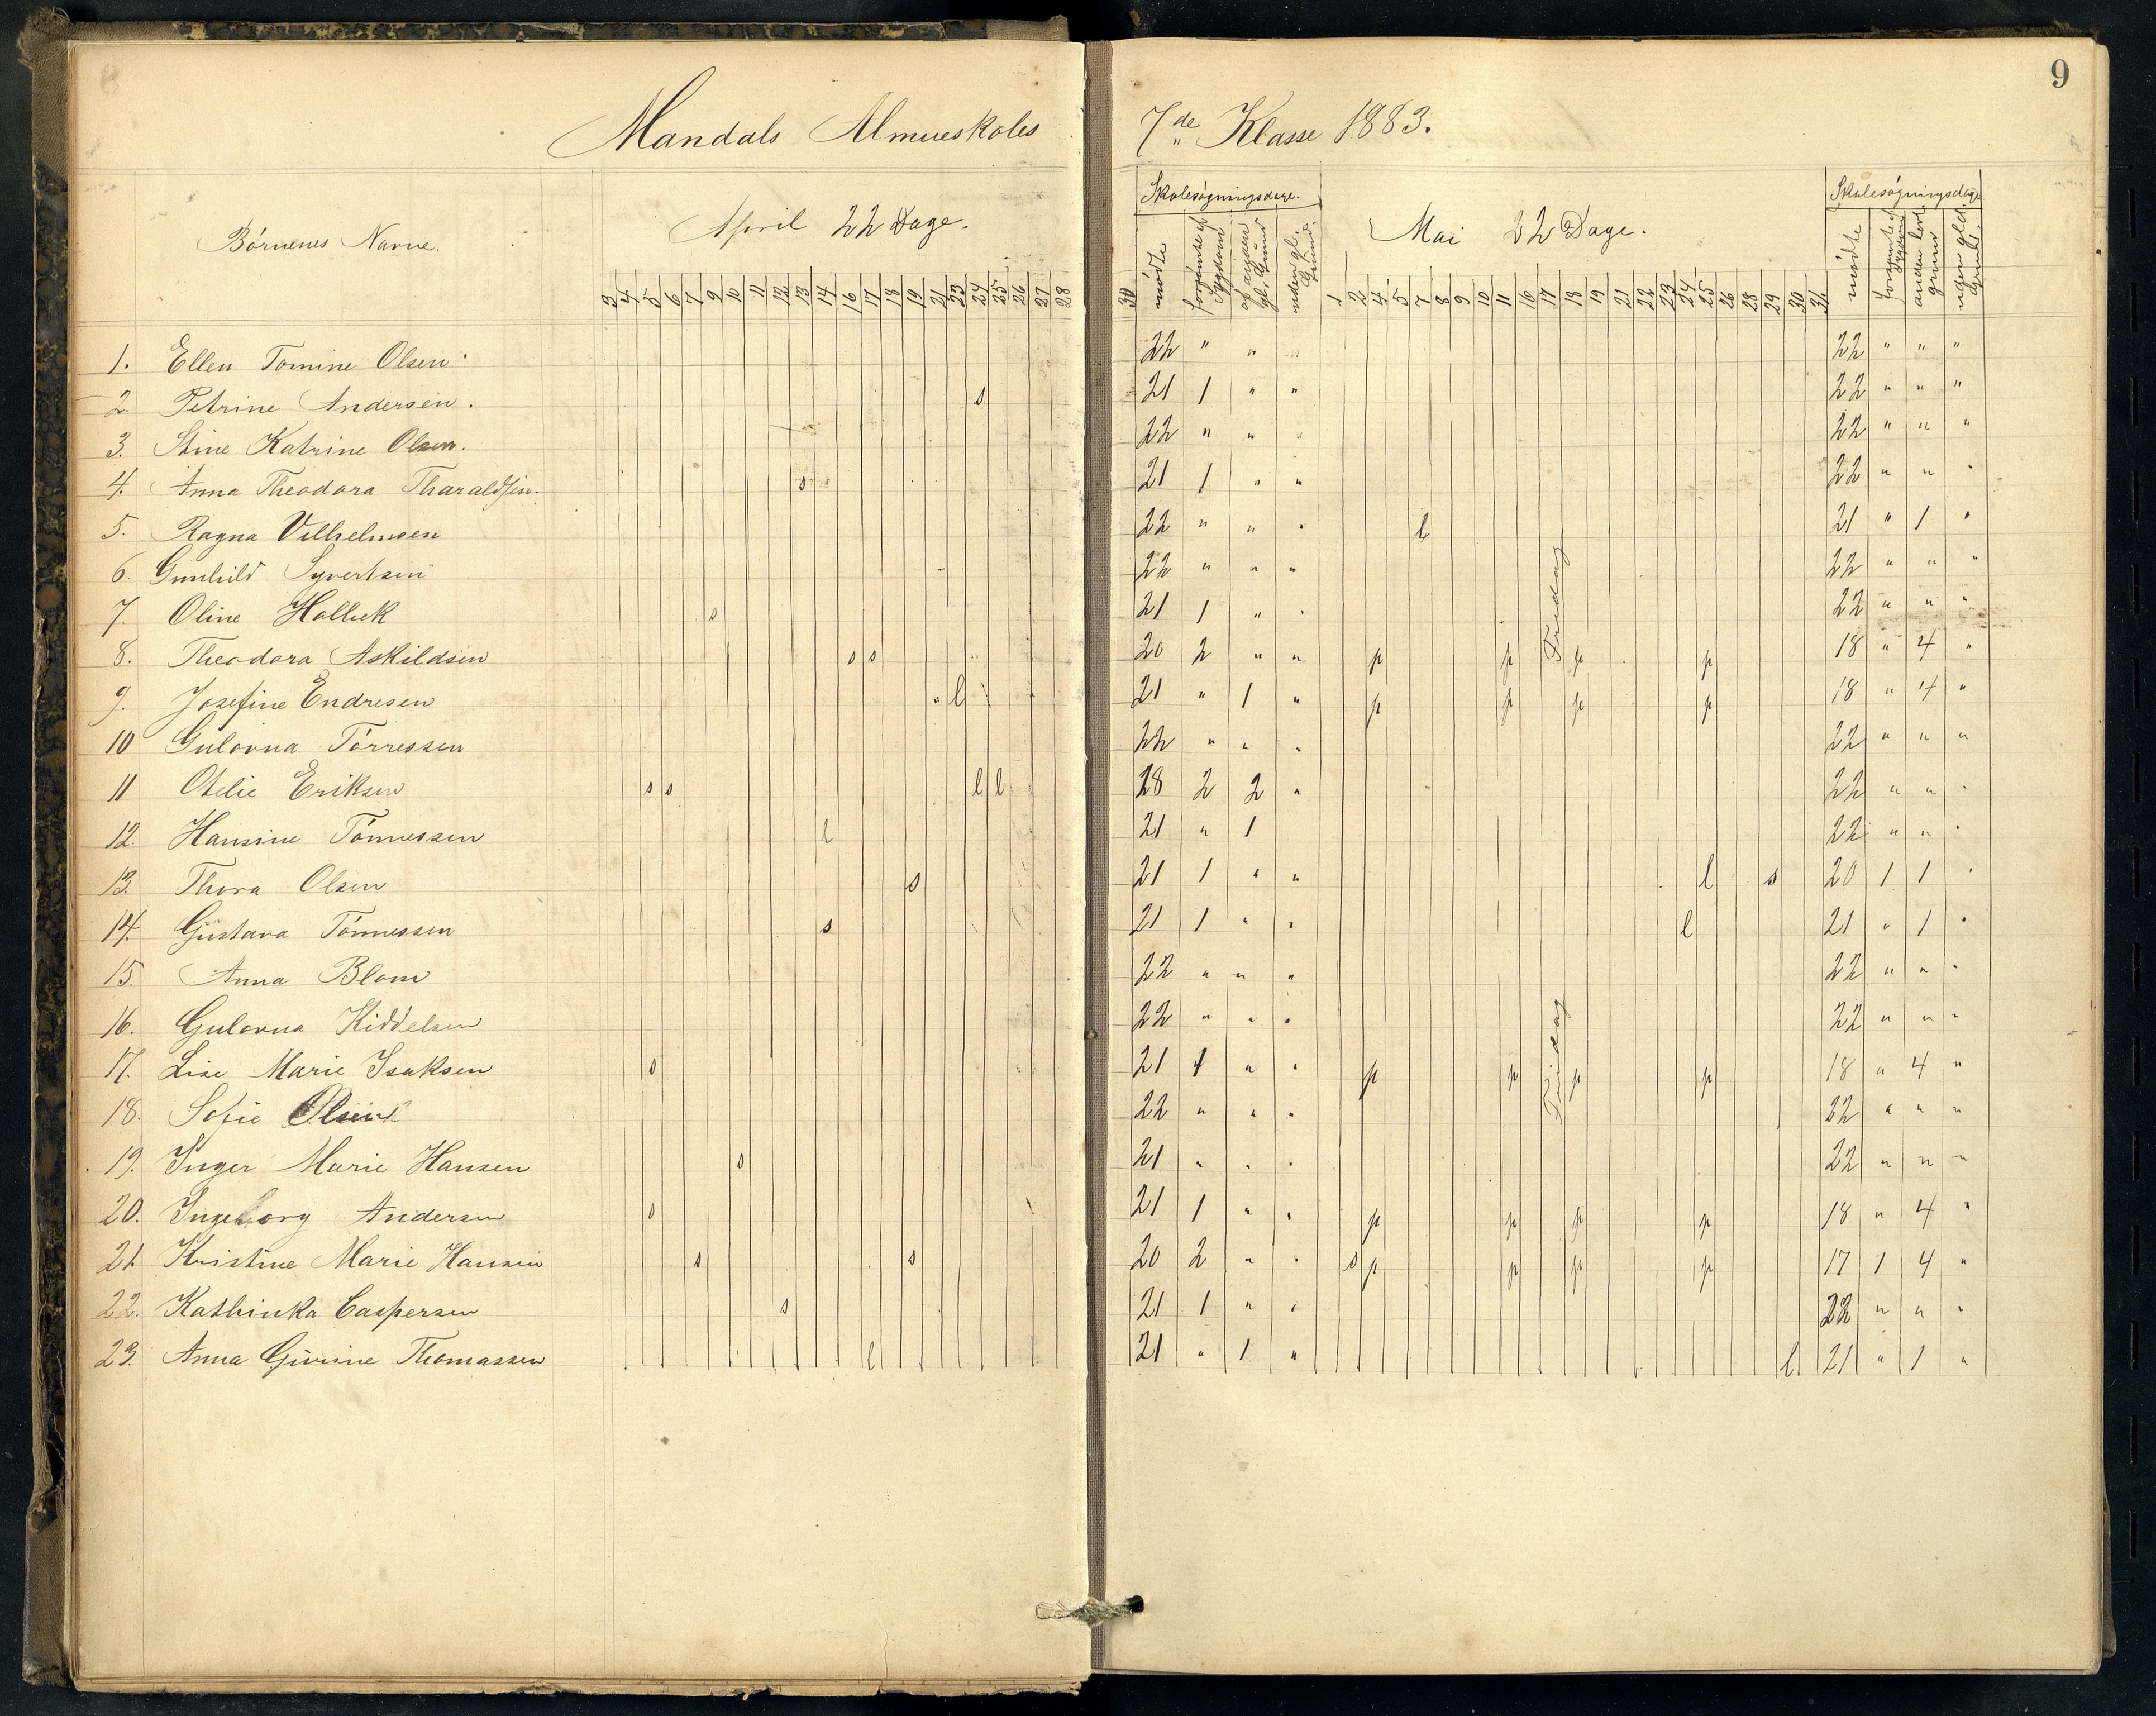 9
Mandals Almueskoles 7de Klasse 1883.
Børnenes Navne.
April 22 Dage.
Skolesøgningsdage.
Mai 22 Dage.
Skolesøgningsdage
3 4 5 6 7 9 10 11 12 13 14 16 17 18 19 21 23 24 25 26 27 28 30 mødte 1 2 4 5 7 8 9 10 11 16 17 18 19 21 22 23 24 25 26 28 29 30 31 mødte
1. Ellen Tomine Olsen 22 " " " 22 " " "
2. Petrine Andersen. s 21 1 " " 22 " " "
3. Stine Katrine Olsen. 22 " " " 22 " " "
4. Anna Theodora Tharaldsen. s 21 1 " " 22 " " "
5. Ragna Vilhelmsen 22 " " " l 21 " 1 "
6. Gunhild Syvertsen 22 " " " 22 " " "
7. Oline Holbek s 21 1 " " 22 " " "
8. Theodora Askildsen s s 20 2 " " p p p p 18 " 4 "
9. Josefine Endresen " l 21 " 1 " p p p p 18 " 4 "
10 Gulovna Tórressen 22 " " " 22 " " "
11 Otelie Eriksen s s l l 18 2 2 " 22 " " "
12. Hansine Tónnessen l 21 " 1 22 " " "
13. Thora Olsen s 21 1 " " l s 20 1 1 "
14. Gustava Tónnessen s 21 1 " " l 21 " 1 "
15. Anna Blom 22 " " " 22 " " "
16. Gulovna Kiddelsen 22 " " " 22 " " "
17. Lise Marie Isaksen s 21 1 " " p p p p 18 " 4 "
18. Sofie Olsen 22 " " " 22 " " "
19. Inger Marie Hansen s 21 " " " 22 " " "
20. Ingeborg Andersen s 21 1 " " p p p p 18 " 4 "
21. Kristine Marie Hansen s s 20 2 " " s p p p p 17 1 4 "
22. Kathinka Caspersen s 21 1 " " 22 " " "
23. Anna Givrine Thomassen l 21 " 1 " l 21 " 1 "
Fridag
Fridag